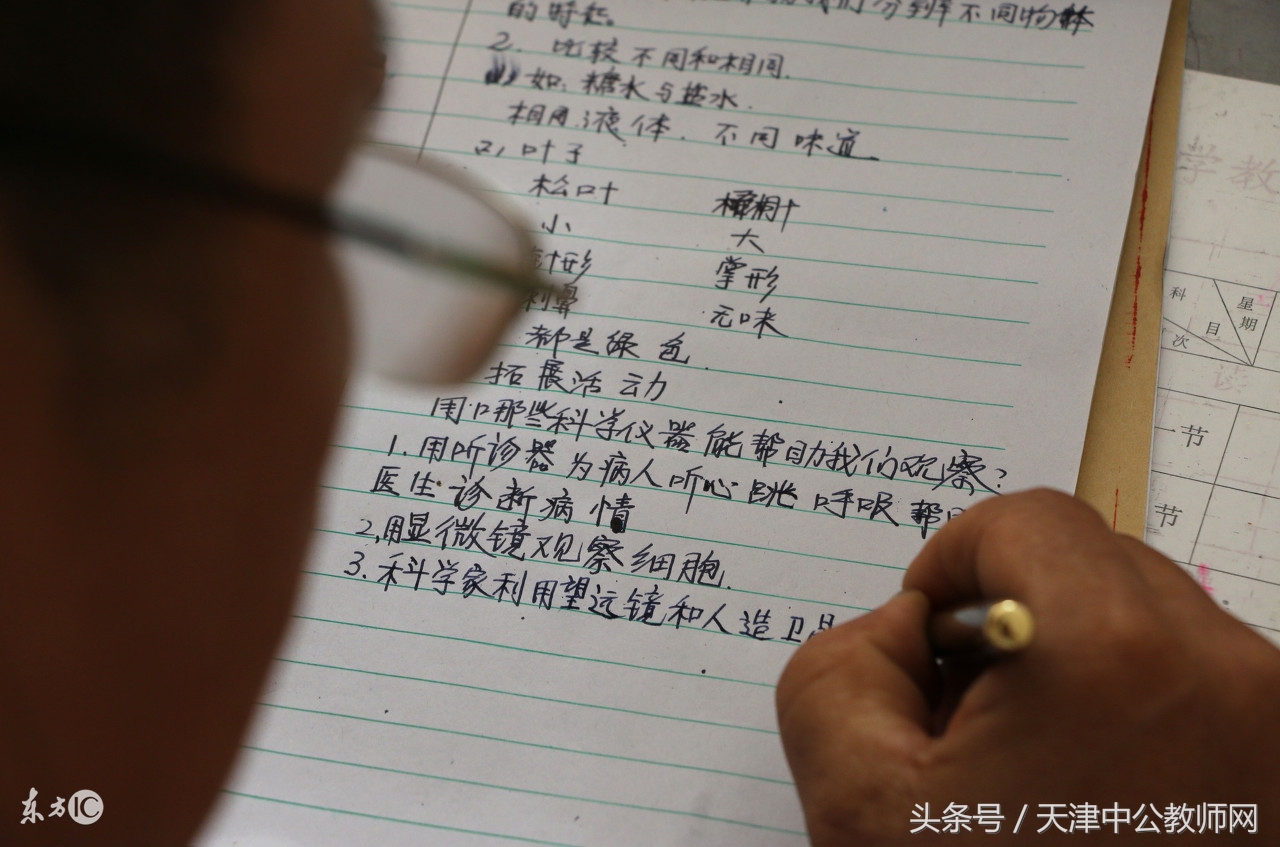 我们分辨不同物体
的特征。
2. 比较不同和相同.
(1) 如：糖水与盐水.
相同：液体. 不同 味道
2) 叶子
松叶 樟桐叶
小 大
针形 掌形
刺鼻 无味
都是绿色.
拓展活动
用:哪些科学仪器能帮助我们观察？
1. 用听诊器为病人听心跳 呼吸 帮
医生诊断病情
2,用显微镜观察细胞.
3. 科学家利用望远镜和人造卫星
学教
科 目 星期
次
读
一节
节
东方IC
头条号 / 天津中公教师网